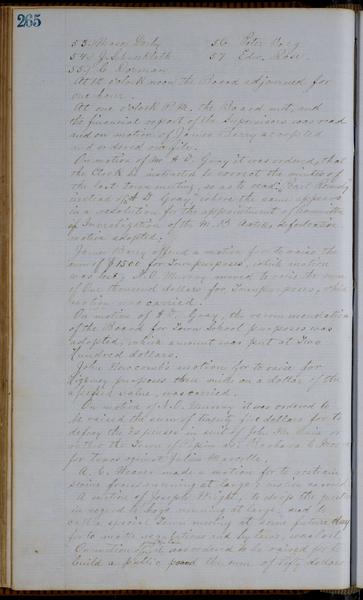 265
53 Mason Darby 56 Peter
54 J. Schuchloth 57 Edw. Rose
55 J. C. Dorman
At 12 oclock noon the Board adjourned for
one hour.
At one oclock P.M. the Board met, and
the financial report of the Supervisors was read
and on motion of James Berry accepted
and ordered on file.
On motion of Mr A D. Gray it was ordered, that
the Clerk be instructed to correct the minutes of
the last town meeting, so as to read
instead of A D. Gray, where the same appears
in a resolution for the appointment of Committee
of Investigation of the defalcation
motion adopted.
James Berry offered a motion for to raise the
sum of $1500 for Town purposes, which motion
was lost, N. C. Murray moved to raise the sum
of One thousand dollars for Town purposes, which
motion was carried.
On motion of A D. Gray, the recommendation
of the Board for Town School purposes was
adopted, which amount was put at Two
Hundred dollars.
John Newcomb's motion for to raise for
Highway purposes three mills on a dollar of the
assessed value, was carried.
On motion of N. C. Murray it was ordered to
be raised the sum of twenty five dollars for to
defray the expenses in suit of John
the Town of
for taxes against Julius
A. C. made a motion for to restrain
swine from running at large motion carried
A motion of Joseph Wright, to drop the
in regard to hogs running at large, and to
call a special Town meeting at some future day
for to make regulations and by laws, was lost
On motion of it was ordered to be raised for to
build a public pound the sum of fifty dollars